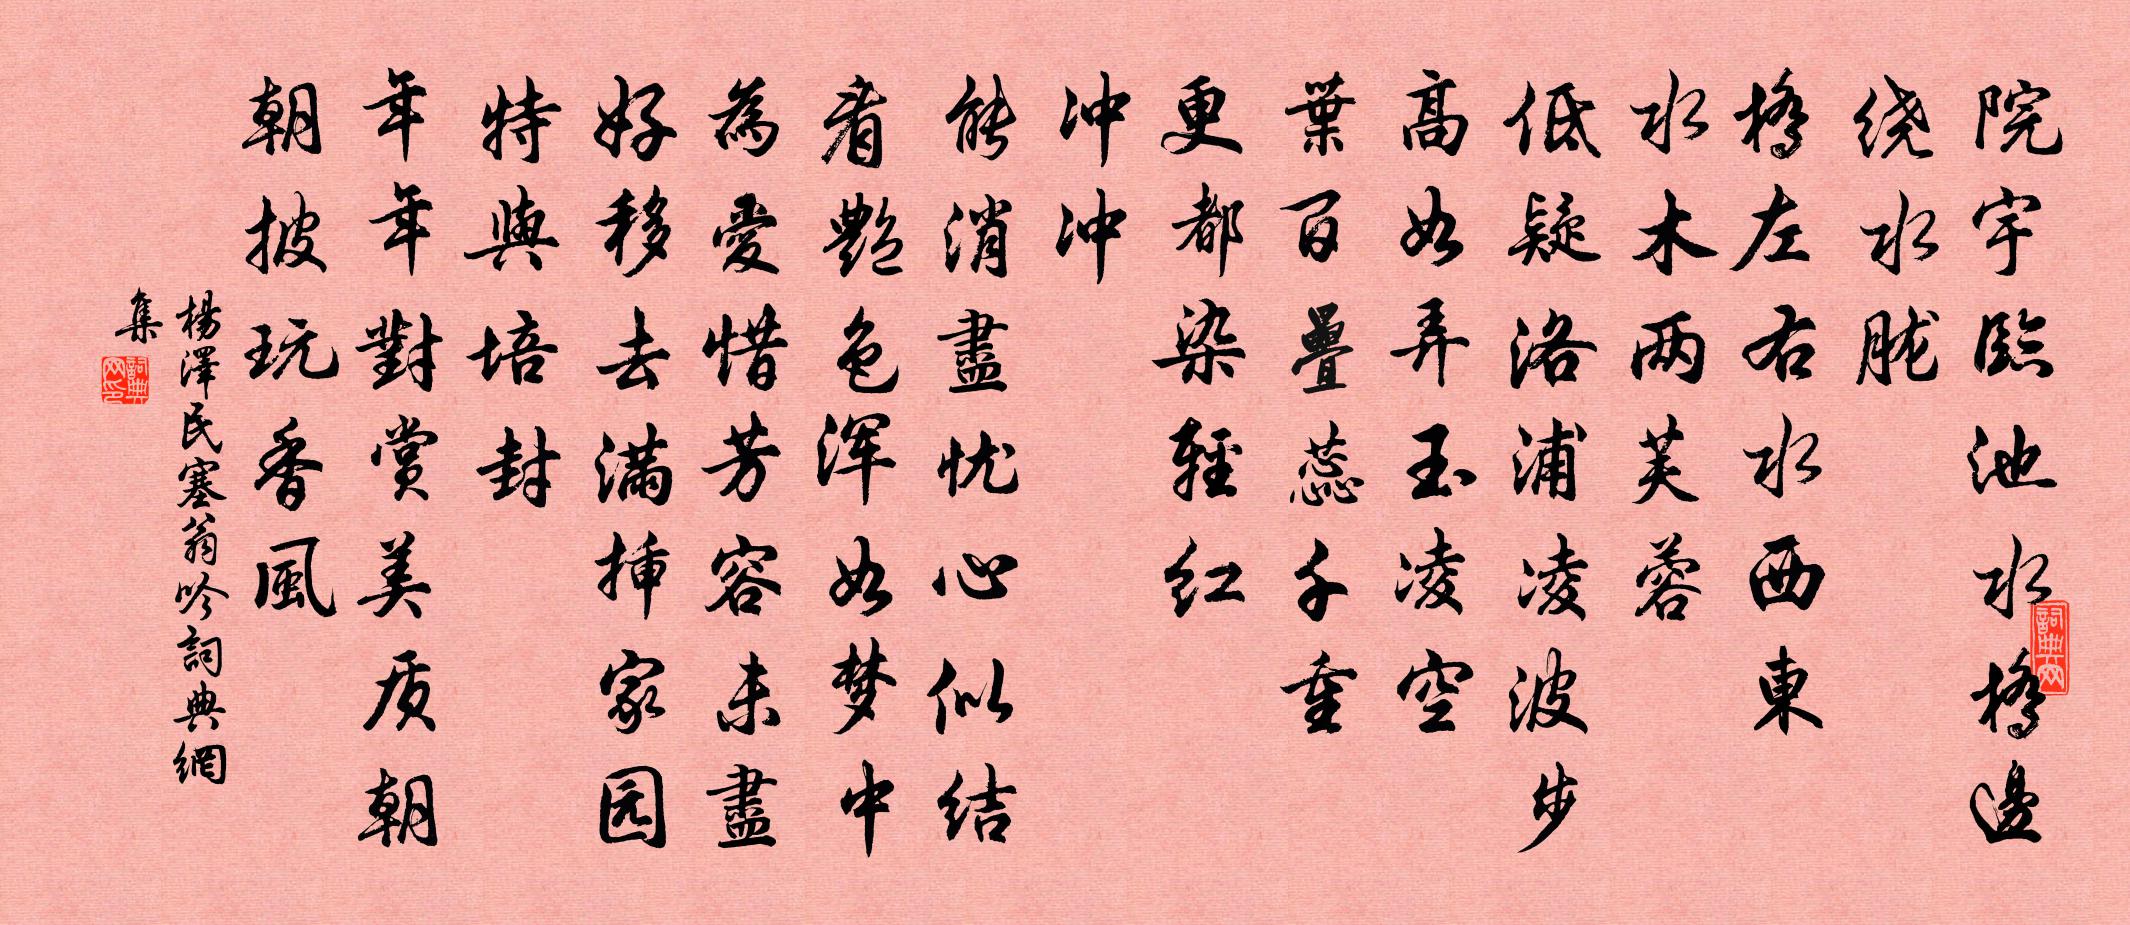 院宇临池水橋邊
绕水胧
橋左右水西東
水木两芙蓉
低疑洛浦凌波步
高如弄玉凌空
葉百疊蕊千重
更都染輕红
冲冲
能消盡忧心似结
看艷色浑如梦中
為愛惜芳容未盡
好移去满挿家园
特與培封
年年對賞美质朝
朝披玩香風
楊澤民塞翁吟詞典網
集
詞典網
詞典網印